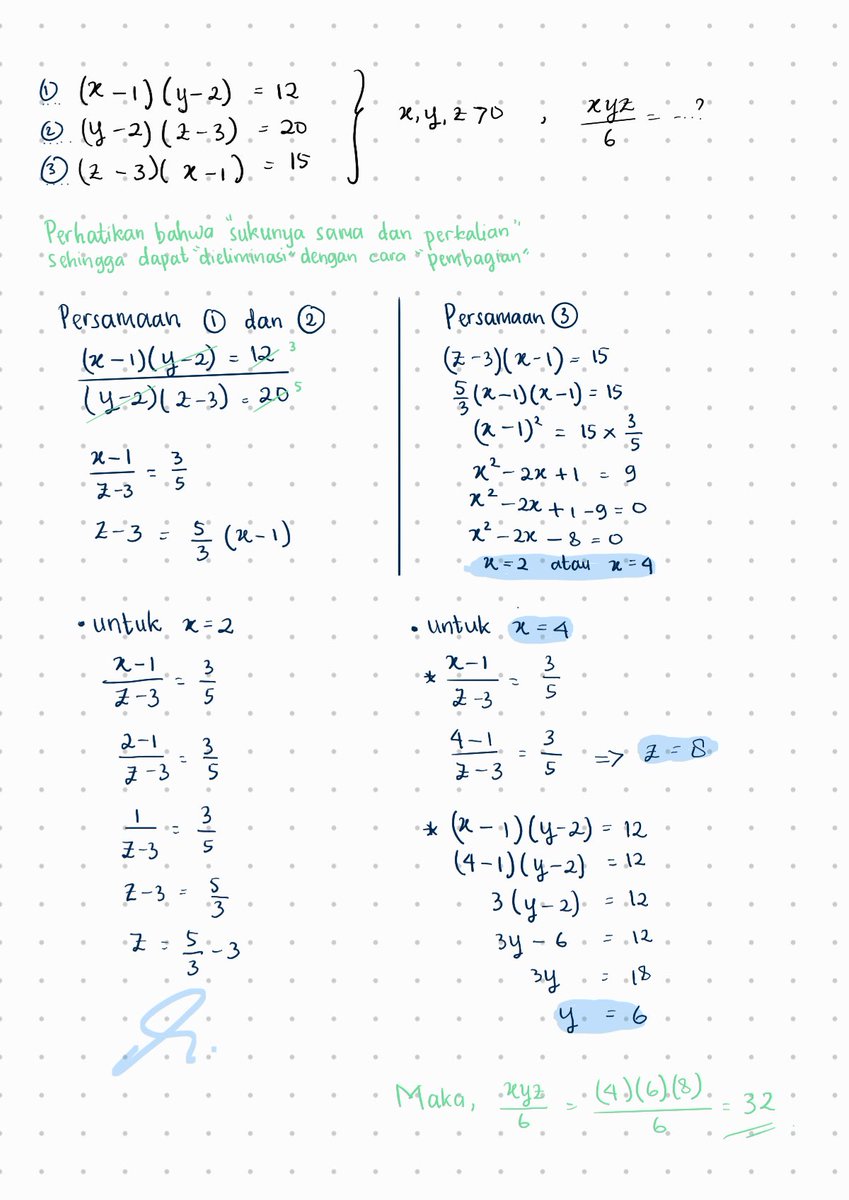 ① (x-1)(y-2) = 12
② (y-2)(z-3) = 20
③ (z-3)(x-1) = 15
x, y, z > 0 , xyz/6 = ...?
Perhatikan bahwa "sukunya sama dan perkalian"
sehingga dapat "dieliminasi" dengan cara "pembagian"
Persamaan ① dan ②
(x-1)(y-2) = 12 3
(y-2)(z-3) = 20 5
x-1/z-3 = 3/5
z-3 = 5/3 (x-1)
Persamaan ③
(z-3)(x-1) = 15
5/3 (x-1)(x-1) = 15
(x-1)² = 15 × 3/5
x² - 2x + 1 = 9
x² - 2x + 1 - 9 = 0
x² - 2x - 8 = 0
x = 2 atau x = 4
• untuk x = 2
x-1/z-3 = 3/5
2-1/z-3 = 3/5
1/z-3 = 3/5
z-3 = 5/3
z = 5/3 - 3
• untuk x = 4
* x-1/z-3 = 3/5
4-1/z-3 = 3/5 => z = 8
* (x-1)(y-2) = 12
(4-1)(y-2) = 12
3(y-2) = 12
3y - 6 = 12
3y = 18
y = 6
Maka, xyz/6 = (4)(6)(8)/6 = 32